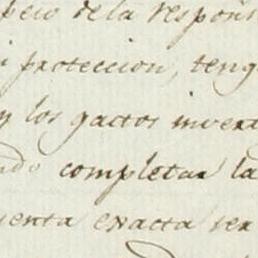 pecio dela respons
i proteccion, teng
y los gastos invert
ndo completar la
uenta exacta ser